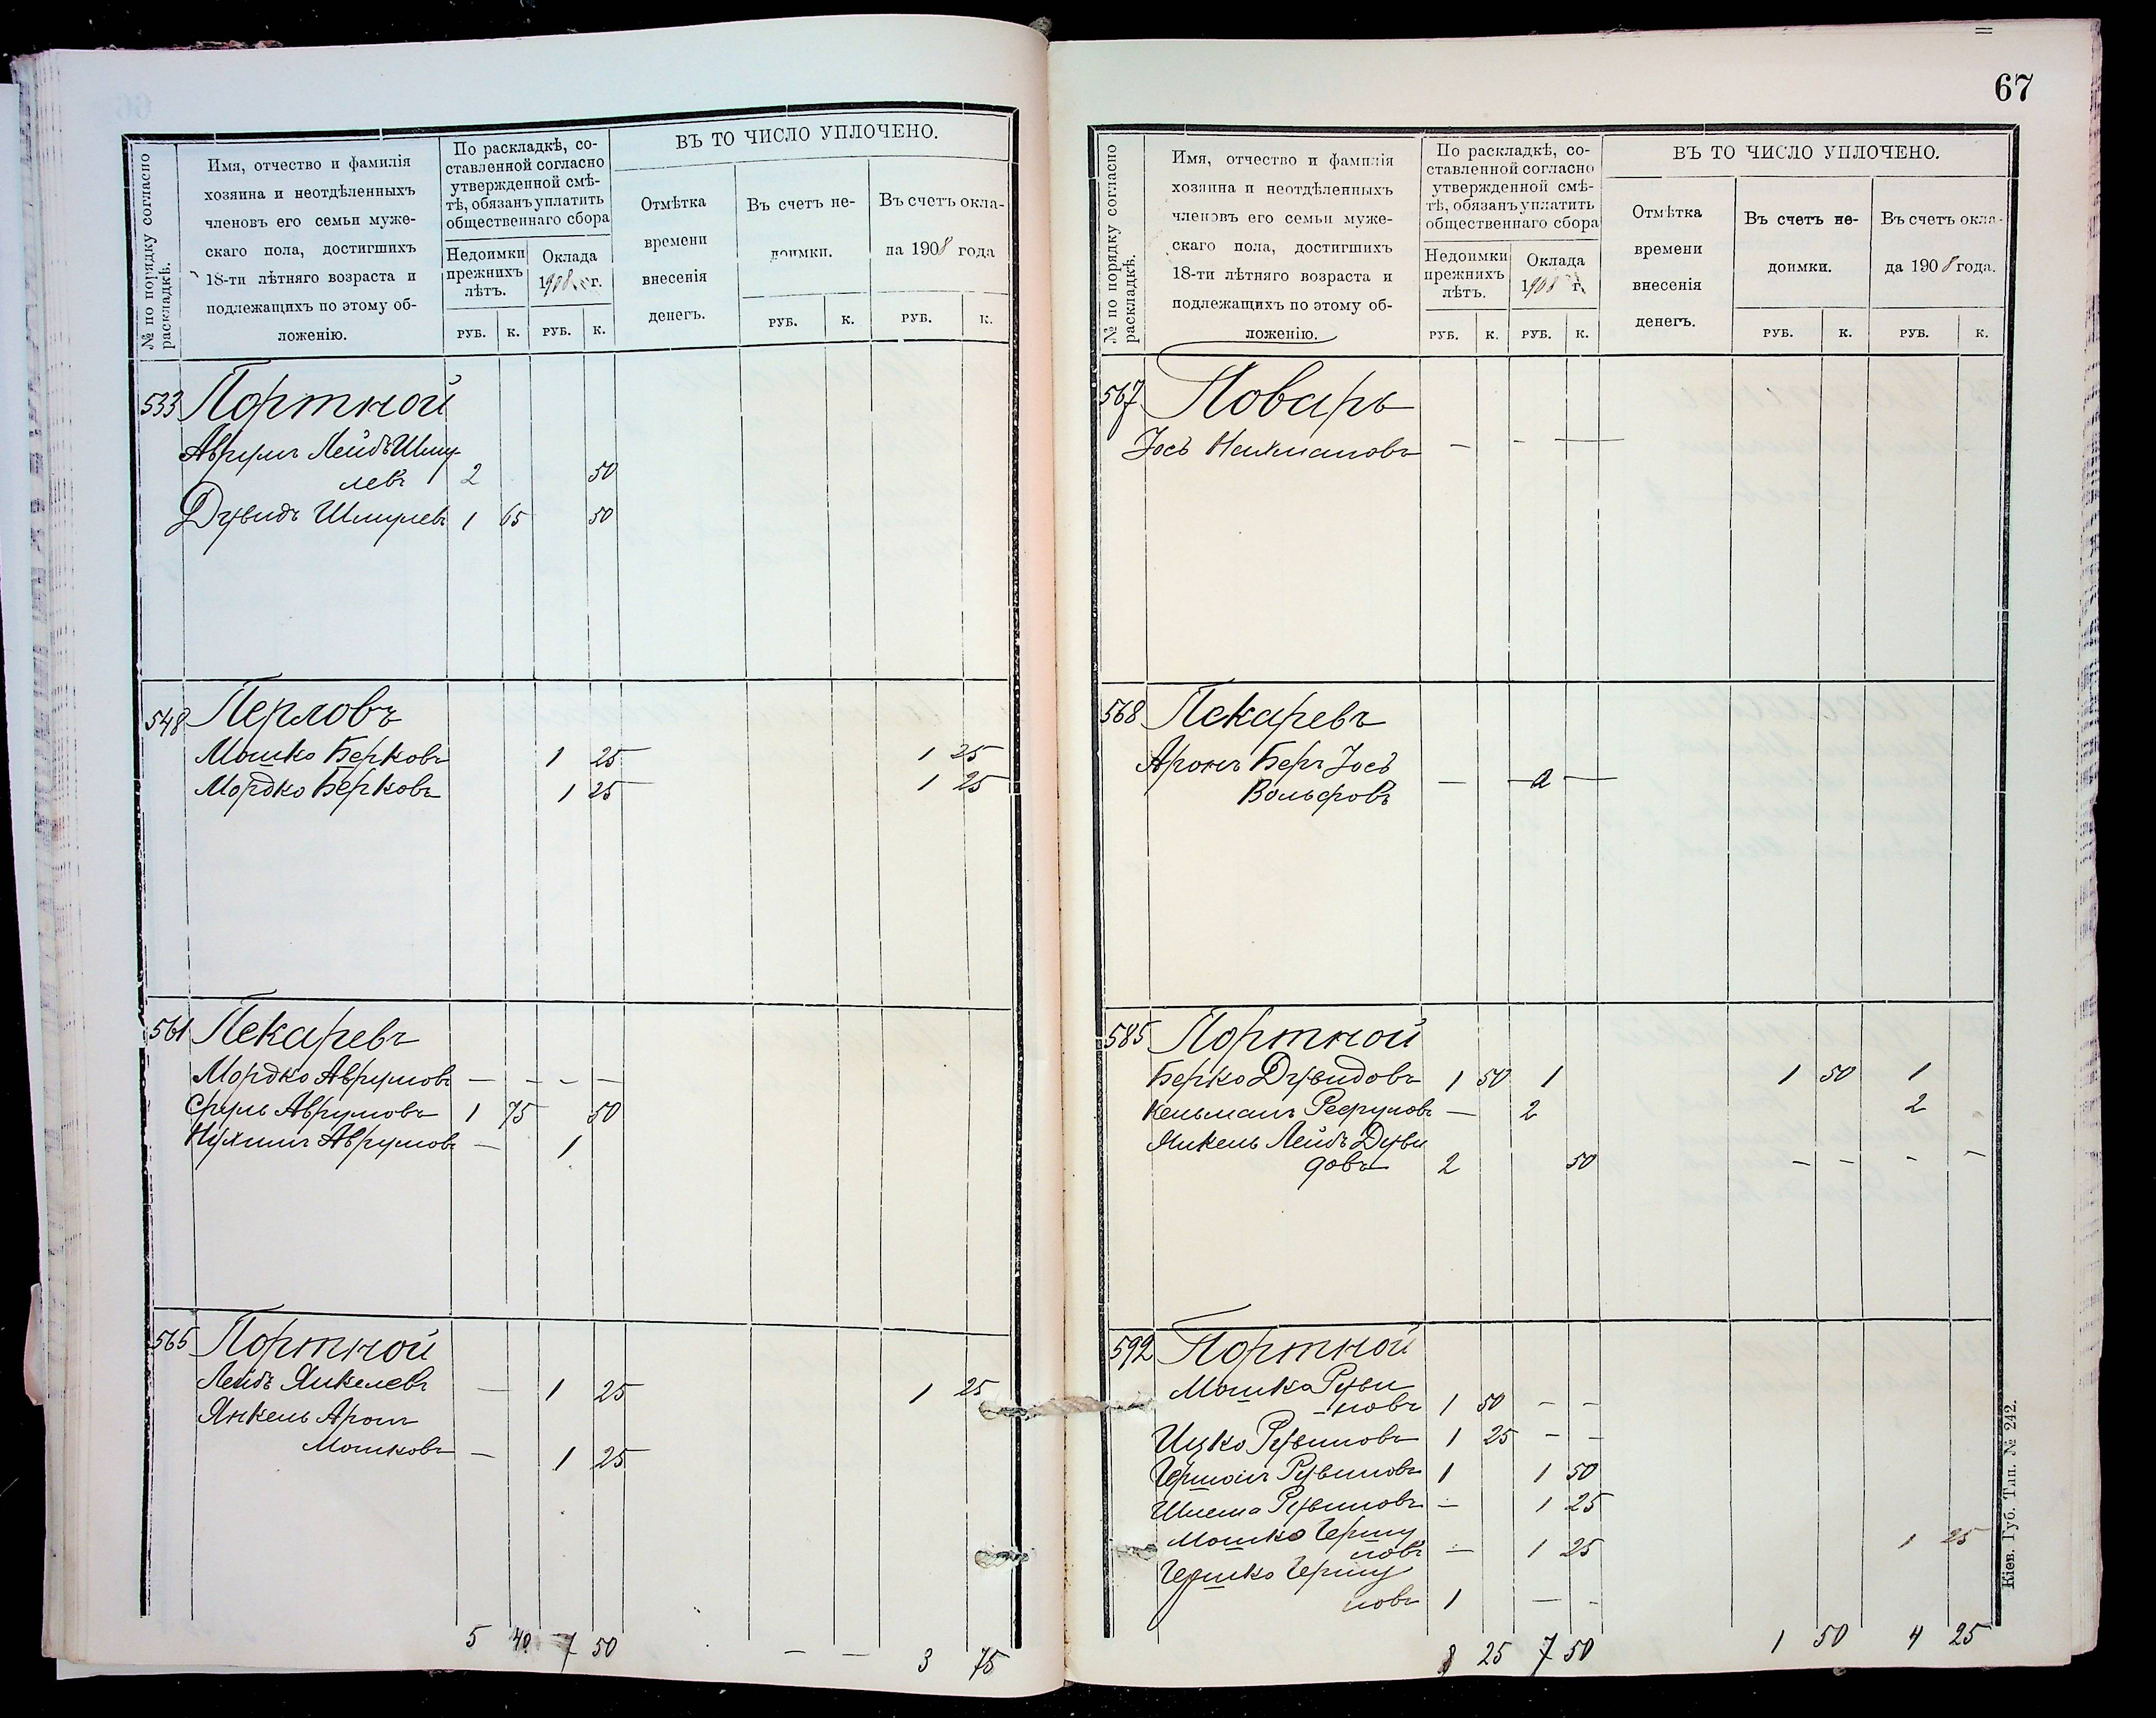 № по порядку согласно
раскладкѣ.
Имя, отчество и фамилія
хозяина и неотдѣленныхъ
членовъ его семьи муже-
скаго пола, достигшихъ
18-ти лѣтняго возраста и
подлежащихъ по этому об-
ложенію.
По раскладкѣ, со-
ставленной согласно
утвержденной смѣ-
тѣ, обязанъ уплатить
общественнаго сбора
Недоимки
прежнихъ
лѣтъ.
Оклада
1908 г.
РУБ. К. РУБ. К.
ВЪ ТО ЧИСЛО УПЛОЧЕНО.
Отмѣтка
времени
внесенія
денегъ.
Въ счетъ не-
доимки.
РУБ. К.
Въ счетъ окла-
да 1908 года
РУБ. К.
533 Портной
Аврумъ Лейбъ Шму
левъ 2 50
Дувидъ Шмулевъ 1 65 50
548 Перловъ
Мошко Берковъ 1 25 1 25
Мордко Берковъ 1 25 1 25
561 Пекаревъ
Мордко Аврумовъ — - - —
Сруль Аврумовъ 1 75 50
Нухимъ Аврумовъ — 1
565 Портной
Лейбъ Янкелевъ — 1 25 1 25
Янкель Аронъ
Мошковъ — 1 25
5 40 7 50 — — 3 75
67
№ по порядку согласно
раскладкѣ.
Имя, отчество и фамилія
хозяина и неотдѣленныхъ
членовъ его семьи муже-
скаго пола, достигшихъ
18-ти лѣтняго возраста и
подлежащихъ по этому об-
ложенію.
По раскладкѣ, со-
ставленной согласно
утвержденной смѣ-
тѣ, обязанъ уплатить
общественнаго сбора
Недоимки
прежнихъ
лѣтъ.
Оклада
1908 г.
РУБ. К. РУБ. К.
ВЪ ТО ЧИСЛО УПЛОЧЕНО.
Отмѣтка
времени
внесенія
денегъ.
Въ счетъ не-
доимки.
РУБ. К.
Въ счетъ окла-
да 1908 года.
РУБ. К.
567 Поваръ
Іось Нахмановъ — - —
568 Пекаревъ
Аронъ Беръ Іось
Вольфовъ — — —
585 Портной
Берко Дувидовъ 1 50 1 1 50 1
Кельманъ Рефуловъ — 2 2
Янкель Лейбъ Дуви
довъ 2 50 - - - -
592 Портной
Мошко Руви
-новъ 1 50 - -
Ицко Рувиновъ 1 25 - -
Гершонъ Рувиновъ 1 1 50
Шлема Рувиновъ — 1 25
Мошко Гершу
новъ — 1 25 1 25
Гершко Гершу
новъ 1 — -
8 25 7 50 1 50 4 25
Кіев. Губ. Тип. № 242.